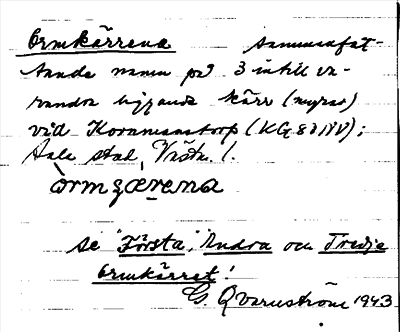 Ormkärrena Sammanfat-
tande namn på 3 intill va-
randra liggande kärr (myrar)
vid Kornmanstorp (KG 8d NV);
Sala stad, Västm. l.
òrmɕærena
se "Första", Andra och Tredje
Ormkärret!
G. Qvarnström 1943